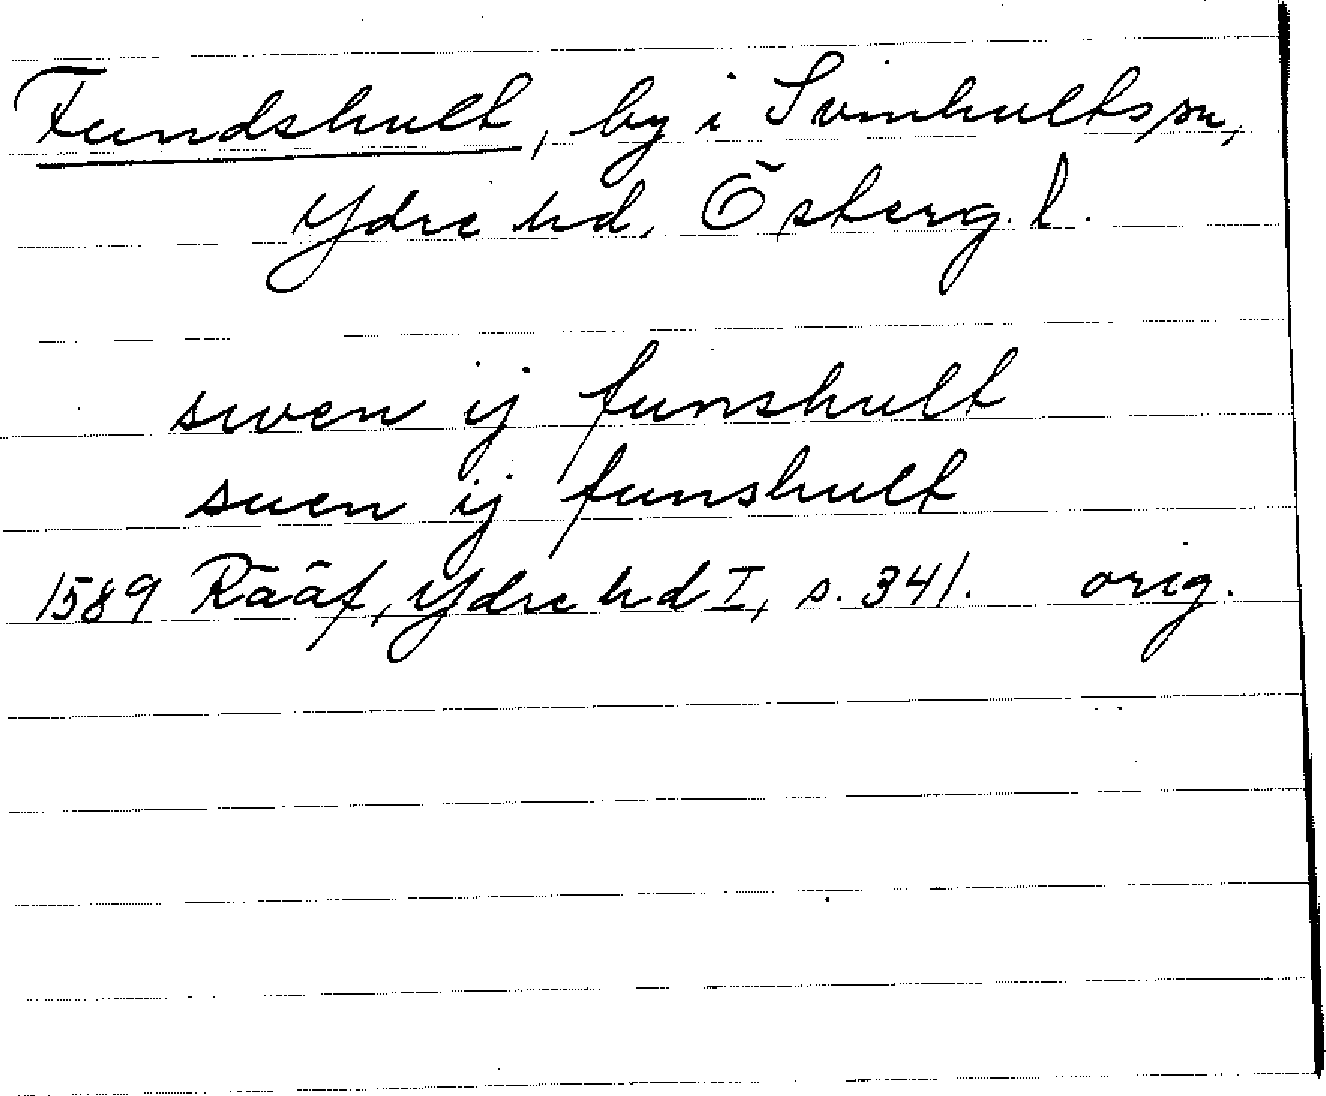 Fundshult, by i Svinhults sn,
Ydre hd, Österg. l.
swen ij funshult
suen ij funshult
1589 Rääf, Ydre hd I, s. 341. orig.